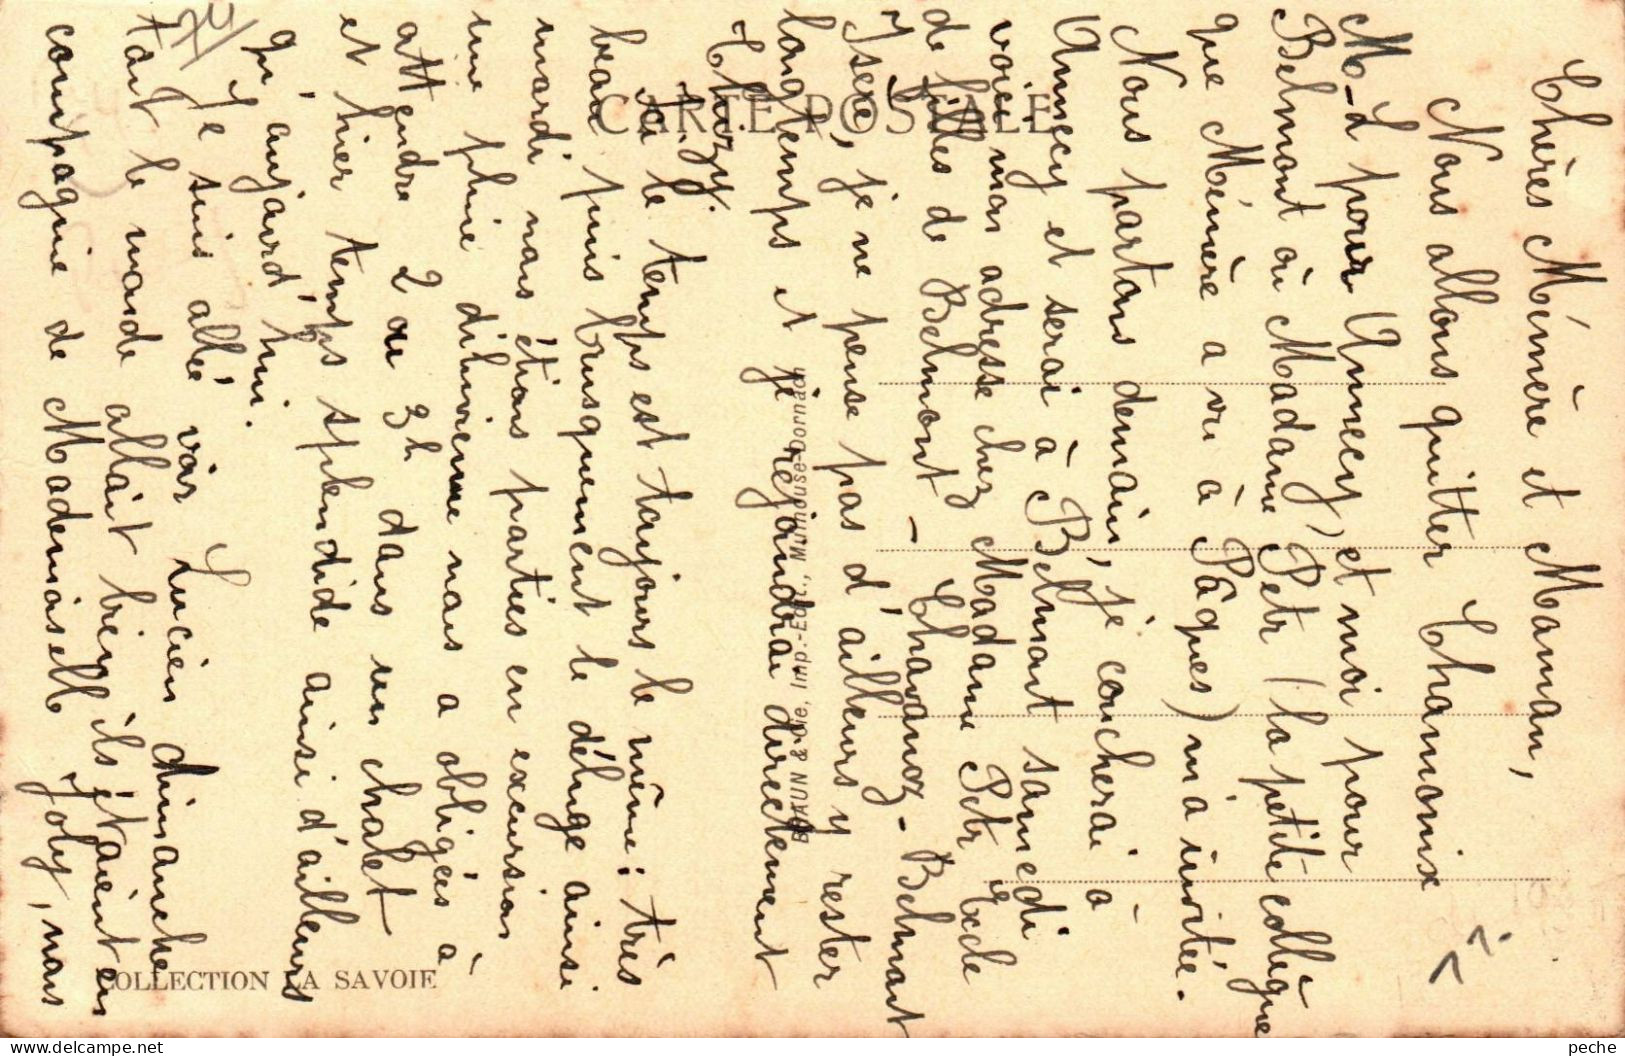 Chères Mémère et Maman,
Nous allons quitter Chamonix
M-L pour Annecy, et moi pour
Belmont où Madame Petr (la petite collègue
que Mémère a vu à Pâques) m'a invitée.
Nous partons demain, je coucherai à
Annecy et serai à Belmont samedi
voici mon adresse chez Madame Petr Ecole
de filles de Belmont - Chavanoz-Belmont
Isère, je ne pense pas d'ailleurs y rester
longtemps et je rejoindrai directement
Chizy.
Ici le temps est toujours le même : très
beau puis brusquement le déluge ainsi
mardi nous étions parties en excursion
une pluie diluvienne nous a obligées à
attendre 2 ou 3h dans un chalet
et hier temps splendide ainsi d'ailleurs
qu'aujourd'hui.
Je suis allée voir Lucien dimanche
tout le monde allait bien, ils étaient en
compagnie de Mademoiselle Joly, nous
CARTE POSTALE
BRAUN & Cie, Imp.-Edit., Mulhouse-Dornach
COLLECTION LA SAVOIE
peche